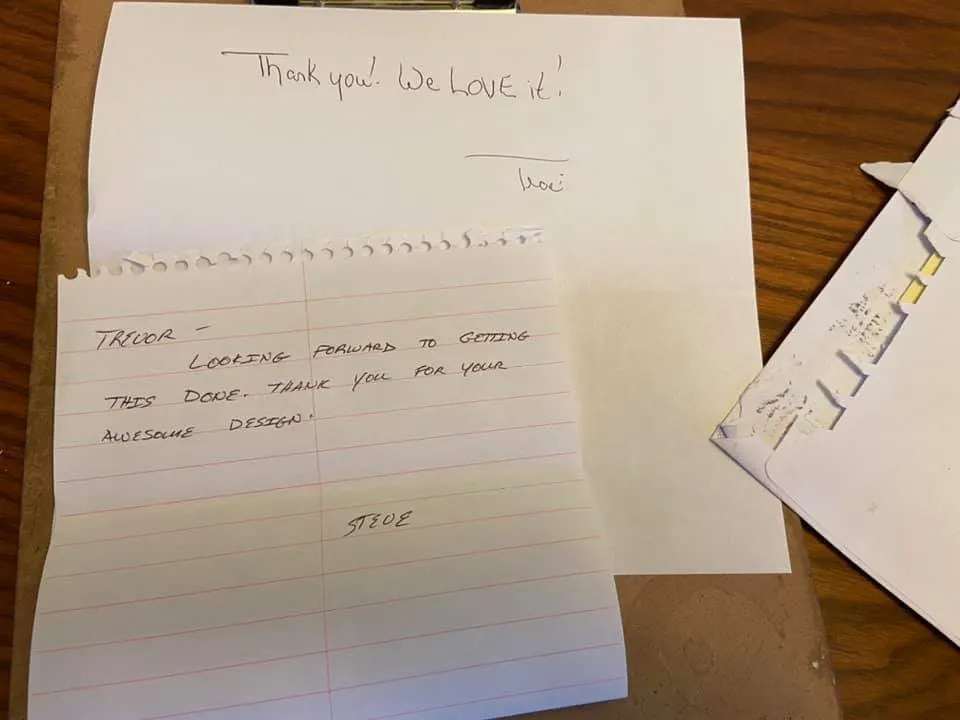 Thank you! We LOVE it!
Traci
TREVOR -
LOOKING FORWARD TO GETTING
THIS DONE. THANK YOU FOR YOUR
AWESOME DESIGN.
STEVE